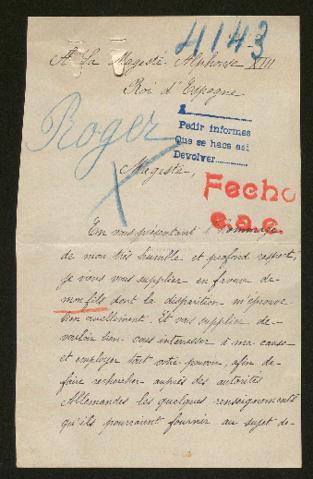 4143
A Sa Magesté Alphonse XIII
Roi d'Espagne
Roger
1
Pedir informes
Que se hace asi
Devolver
Magesté,
Fecho
c.a.c.
En vous présentant l'hommage
de mon très humble et profond respect,
je viens vous supplier en faveur de
mon fils dont la disparition m'éprouve
bien cruellement. Et vous supplier de
vouloir bien vous intéresser à ma cause
et employer tout votre pouvoir, afin de
faire rechercher auprès des autorités
Allemandes les quelques renseignements
qu'ils pourraient fournir au sujet de